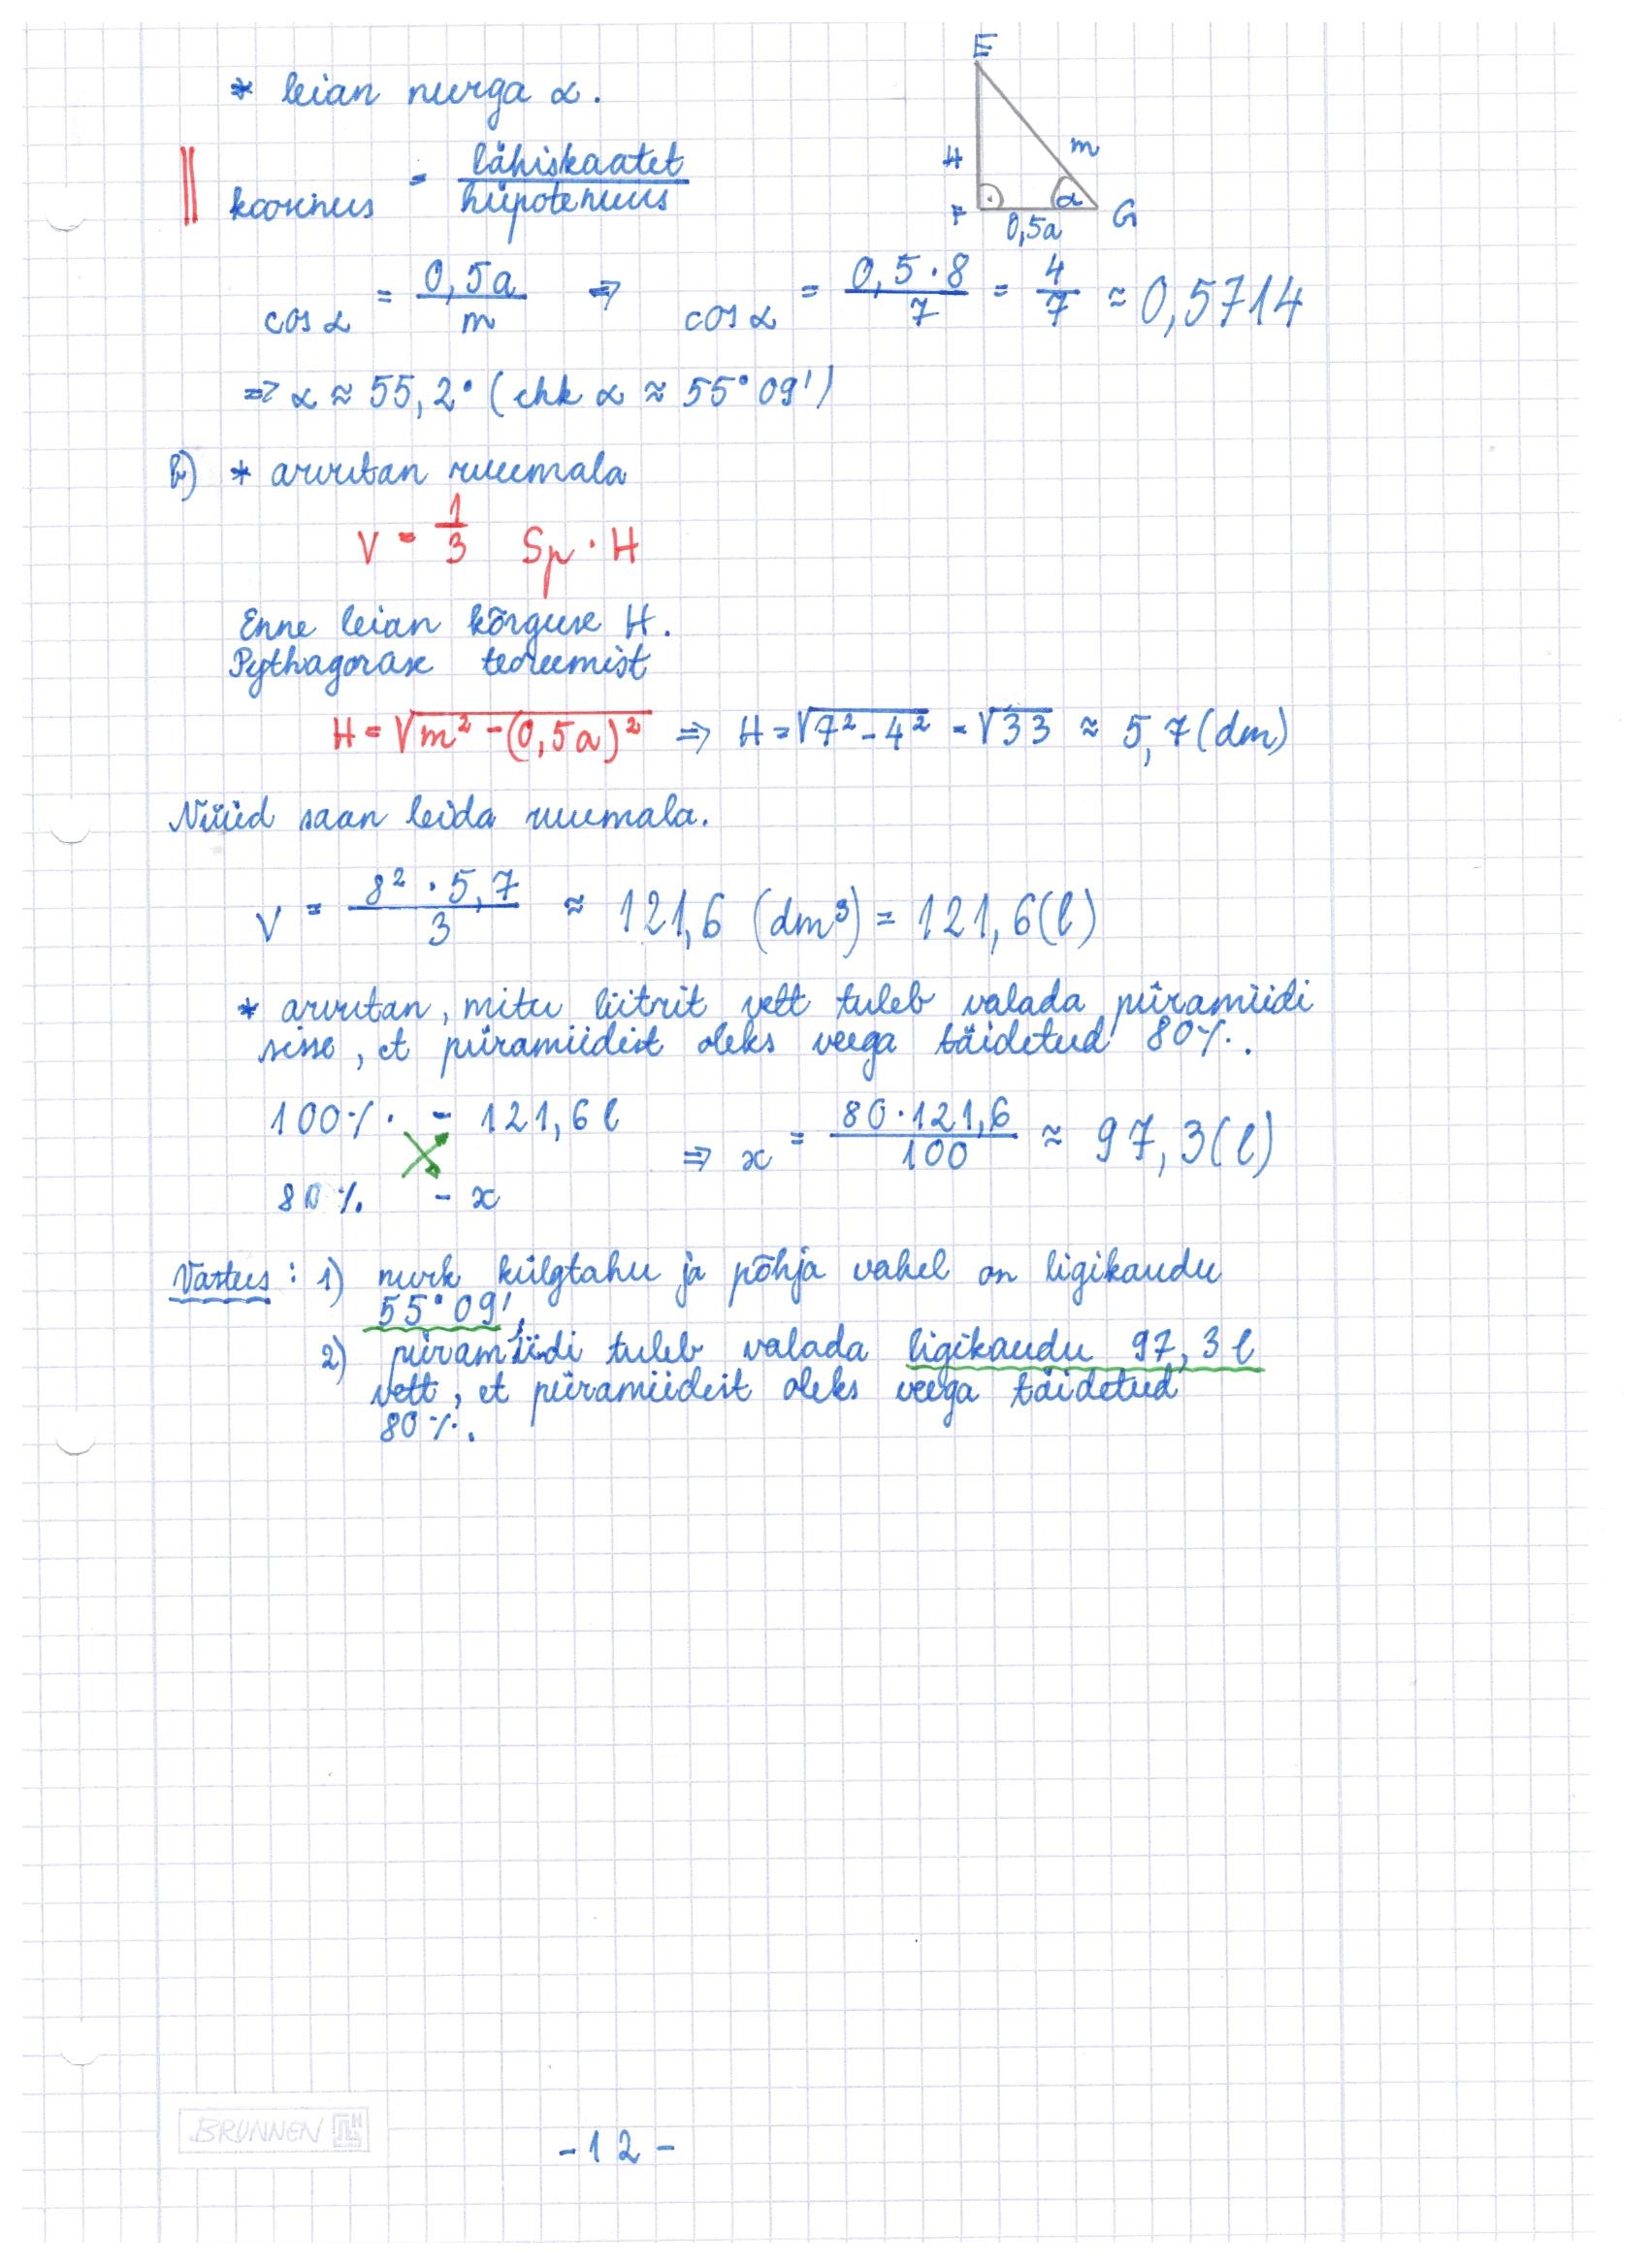 E
* leian nurga α.
H m
koosinus = lähiskaatet / hüpotenuus
F 0,5a α G
cos α = 0,5a / m ⇒ cos α = 0,5·8 / 7 = 4/7 ≈ 0,5714
⇒ α ≈ 55,2° (ehk α ≈ 55°09')
b) * arvutan ruumala
V = 1/3 Sp · H
Enne leian kõrguse H.
Pythagorase teoreemist
H = √(m² - (0,5a)²) ⇒ H = √(7² - 4²) = √33 ≈ 5,7 (dm)
Nüüd saan leida ruumala.
V = 8² · 5,7 / 3 ≈ 121,6 (dm³) = 121,6 (l)
* arvutan, mitu liitrit vett tuleb valada püramiidi
sisse, et püramiidist oleks veega täidetud 80%.
100% - 121,6 l ⇒ x = 80·121,6 / 100 ≈ 97,3 (l)
80% - x
Vastus: 1) nurk külgtahu ja põhja vahel on ligikaudu
55°09',
2) püramiidi tuleb valada ligikaudu 97,3 l
vett, et püramiidist oleks veega täidetud
80%.
BRUNNEN
-12-